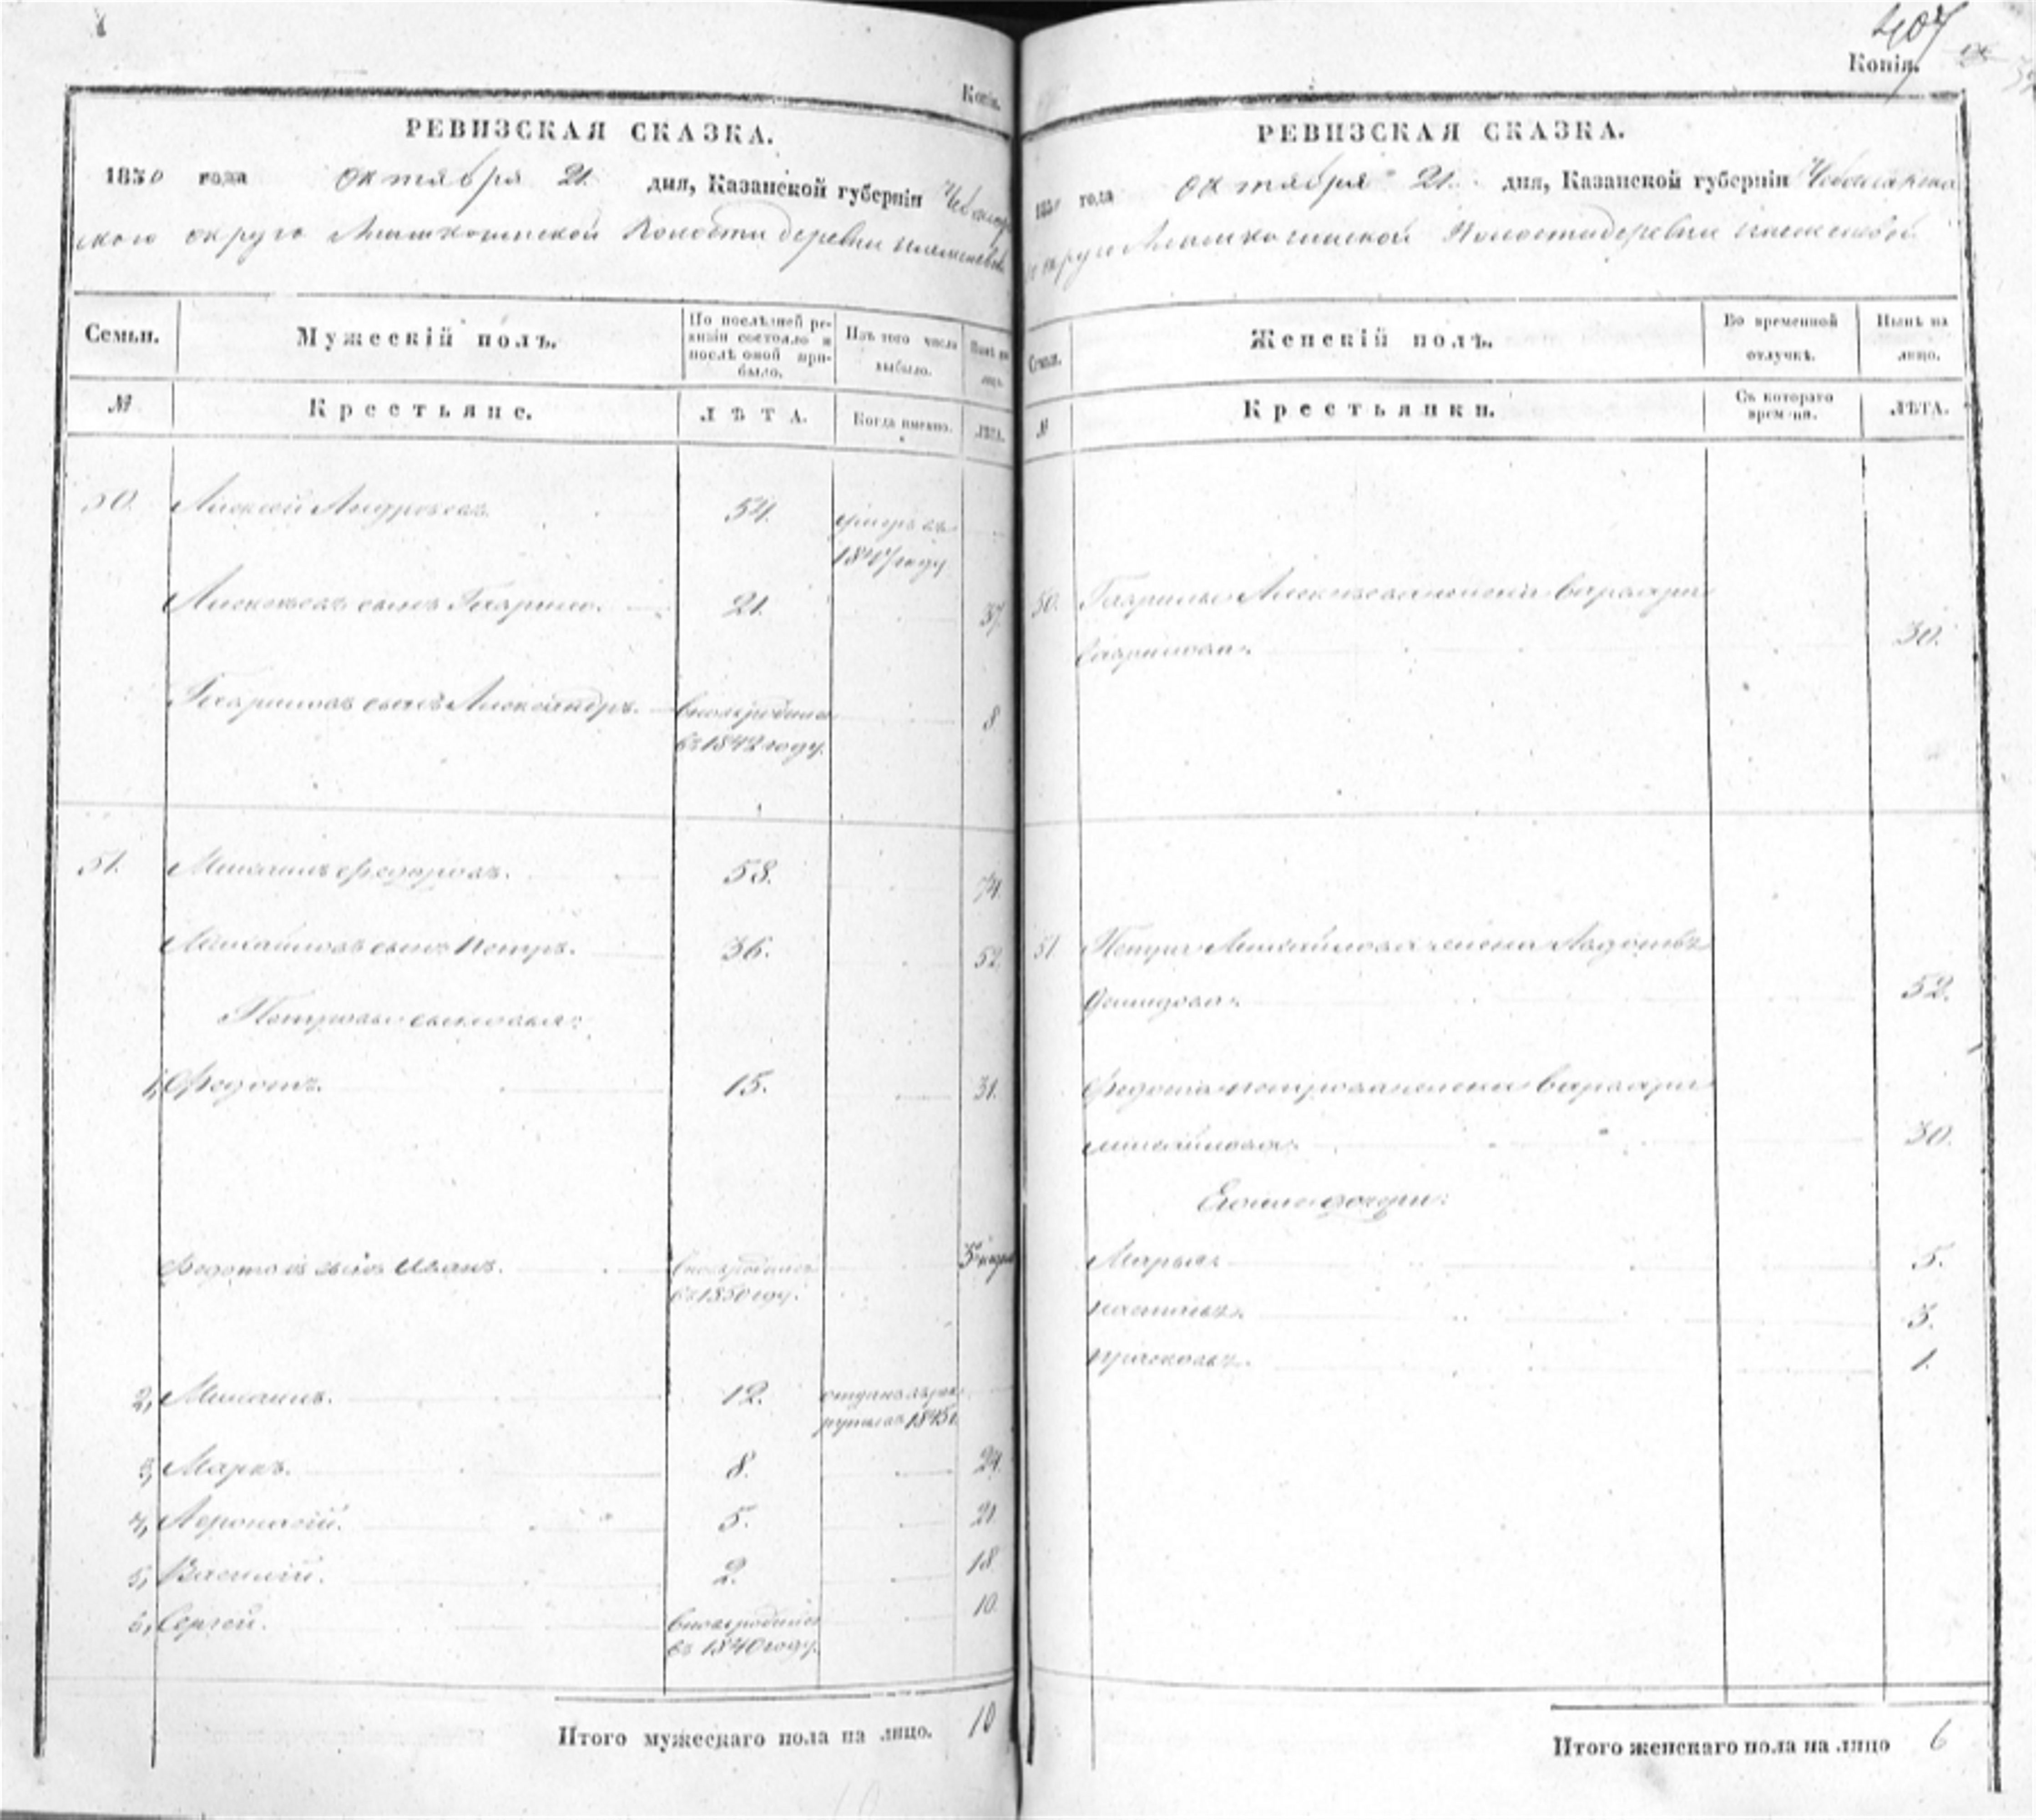 Копія.
РЕВИЗСКАЯ СКАЗКА.
1850 года октября 21. дня, Казанской губерніи Чебоксар
скаго округа волости деревни
Семьи.
Мужескій полъ.
По послѣдней ре-
визіи состояло и
послѣ оной при-
было.
Изъ того числа
выбыло.
Нынѣ на
лицо.
№
Крестьяне.
ЛѢТА.
Когда именно.
ЛѢТА.
50. Алексей Андреевъ 54. умеръ въ
1847 году
Алексеевъ сынъ Гаврило. 21. 37.
Гавриловъ сынъ Александръ. вновь родился 8
въ 1842 году.
51. Михаилъ Федоровъ. 58. 74.
Михайловъ сынъ Петръ. 36. 52.
Петровы сыновья:
1, Федотъ. 15. 31.
Федотовъ сынъ Иванъ. вновь родился
въ 1850 году.
2, Михаилъ. 12. отданъ въ рек
руты въ 1845
3, Маркъ. 8. 24.
4, 5. 21.
5, Василій. 2. 18
6, Сергей. вновь родился 10.
въ 1840 году.
Итого мужескаго пола на лицо. 10
407
Копія.
РЕВИЗСКАЯ СКАЗКА.
1850 года октября 21. дня, Казанской губерніи Чебоксарска
округа волости деревни
Семьи.
Женскій полъ.
Во временной
отлучкѣ.
Нынѣ на
лицо.
№
Крестьянки.
Съ котораго
времени.
ЛѢТА.
50. Гаврилы Алексеева жена Варвара
Гаврилова. 30.
51. Петра Михайлова жена Авдотья
Демидова. 52.
Федота Петрова жена Варвара
Михайлова. 30.
Ево дочери:
Марья 5.
Настасья. 3.
Прасковья. 1.
Итого женскаго пола на лицо 6